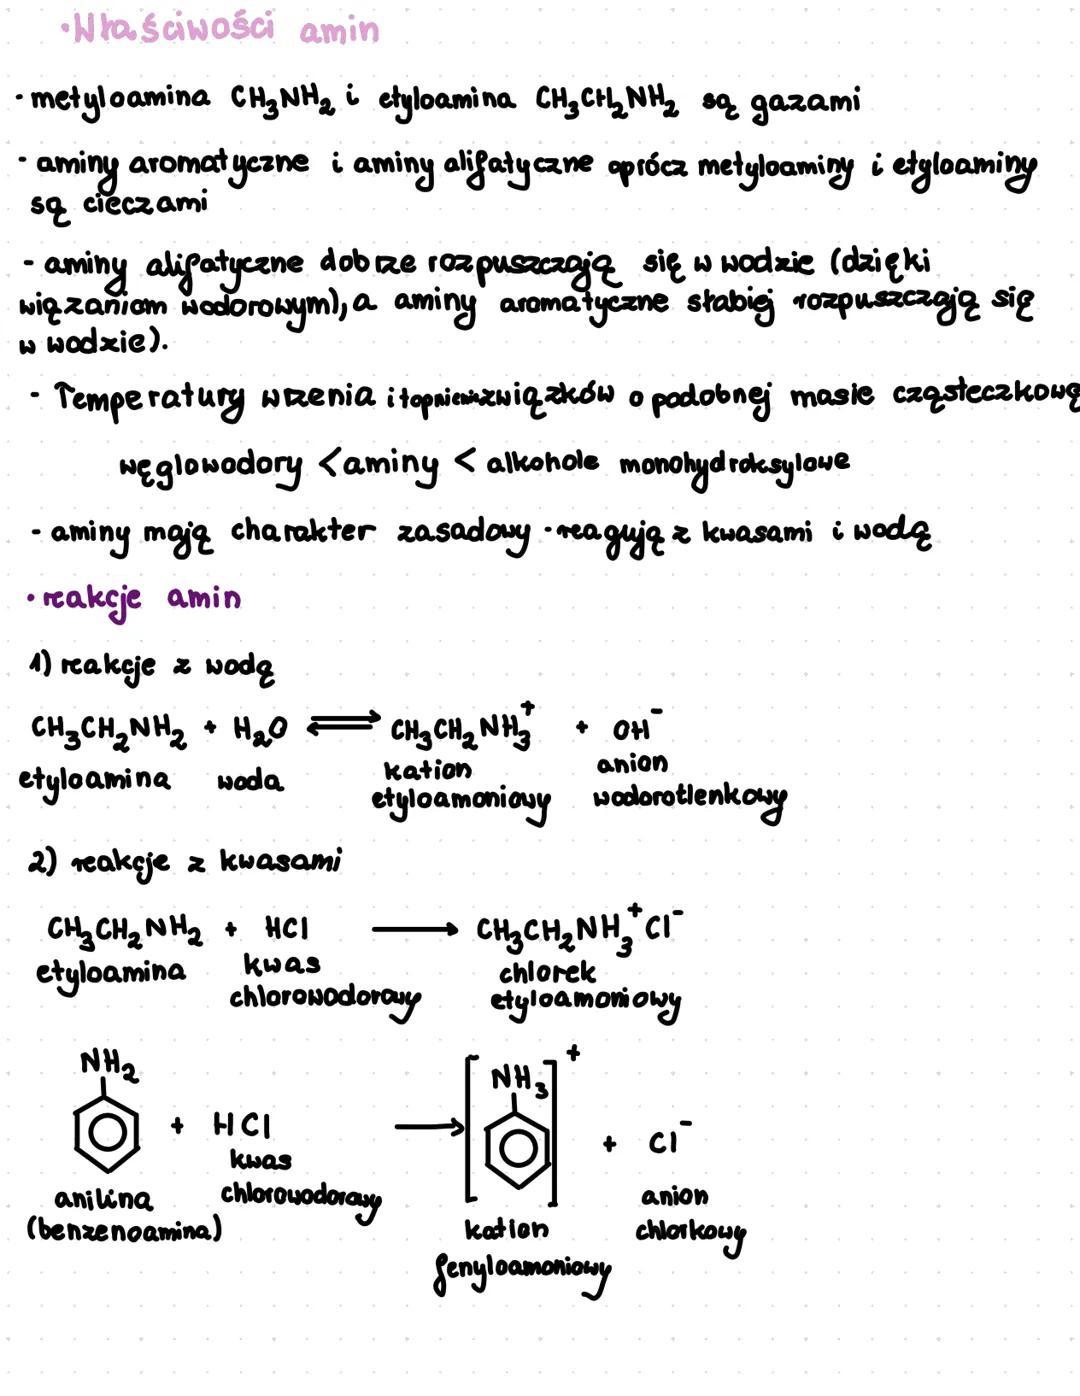 •Właściwości amin
- metyloamina CH₃NH₂ i etyloamina CH₃CH₂NH₂ są gazami
- aminy aromatyczne i aminy alifatyczne oprócz metyloaminy i etyloaminy
są cieczami
- aminy alifatyczne dobrze rozpuszczają się w wodzie (dzięki
wiązaniom wodorowym), a aminy aromatyczne słabiej rozpuszczają się
w wodzie).
- Temperatury wrzenia i topnienia związków o podobnej masie cząsteczkowe
węglowodory < aminy < alkohole monohydroksylowe
- aminy mają charakter zasadowy - reagują z kwasami i wodą
• reakcje amin
1) reakcje z wodą
CH₃CH₂NH₂ + H₂O ⇌ CH₃CH₂NH₃⁺ + OH⁻
etyloamina woda kation anion
etyloamoniowy wodorotlenkowy
2) reakcje z kwasami
CH₃CH₂NH₂ + HCl ⟶ CH₃CH₂NH₃⁺Cl⁻
etyloamina kwas chlorek
chlorowodorowy etyloamoniowy
NH₂ NH₃ +
+ HCl ⟶ + Cl⁻
kwas
anilina chlorowodorowy anion
(benzenoamina) kation chlorkowy
fenyloamoniowy